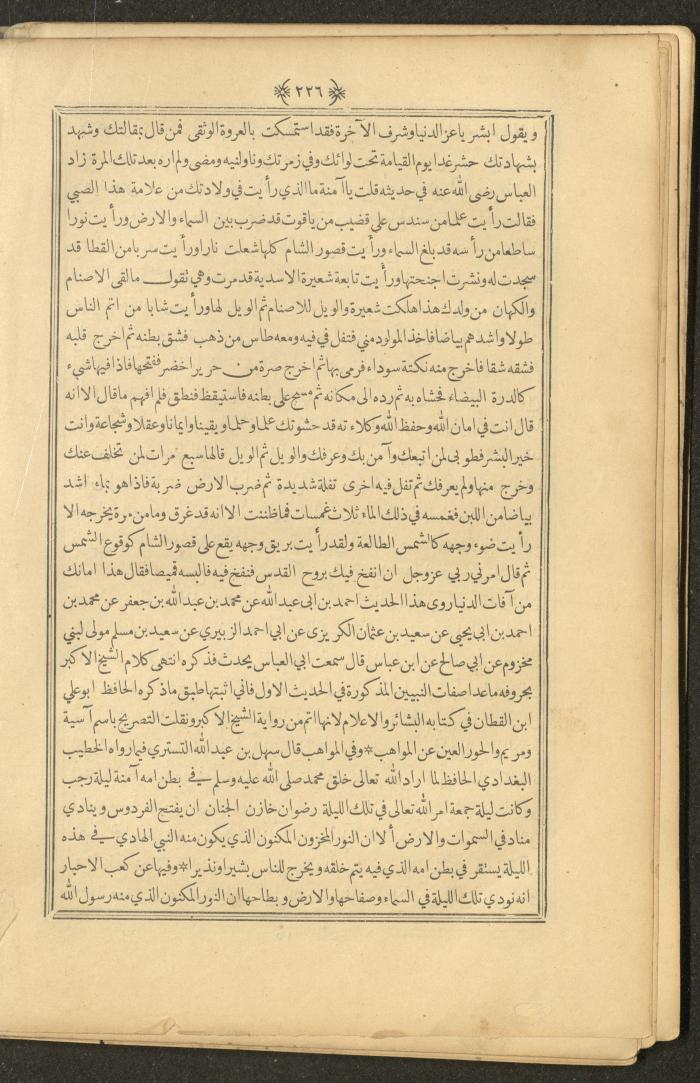 ٢٢٦
ويقول ابشر ياعز الدنيا وشرف الآخرة فقد استمسكت بالعروة الوثقى فمن قال بمقالتك وشهد
بشهادتك حشر غدا يوم القيامة تحت لوائك وفي زمرتك وناولنيه ومضى ولم اره بعد تلك المرة زاد
العباس رضى الله عنه في حديثه قلت ياآمنة ما الذي رأيت في ولادتك من علامة هذا الصبي
فقالت رأيت علما من سندس على قضيب من ياقوت قد ضرب بين السماء والارض ورأيت نورا
ساطعا من رأسه قد بلغ السماء ورأيت قصور الشام كلها شعلت نارا ورأيت سربا من القطا قد
سجدت له ونشرت اجنحتها ورأيت تابعة شعيرة الاسدية قد مرت وهي تقول مالقى الاصنام
والكهان من ولدك هذا هلكت شعيرة والويل للاصنام ثم الويل لها ورأيت شابا من اتم الناس
طولا واشدهم بياضا فاخذ المولود مني فتفل في فيه ومعه طاس من ذهب فشق بطنه ثم اخرج قلبه
فشقه شقا فاخرج منه نكتة سوداء فرمى بها ثم اخرج صرة من حرير اخضر ففتحها فاذا فيها شيء
كالدرة البيضاء فحشاه به ثم رده الى مكانه ثم مسح على بطنه فاستيقظ فنطق فلم افهم ما قال الا انه
قال انت في امان الله وحفظ الله وكلاءته قد حشوتك علما وحلما ويقينا وايمانا وعقلا وشجاعة وانت
خير البشر فطوبى لمن اتبعك وآمن بك وعرفك والويل ثم الويل قالها سبع مرات لمن تخلف عنك
وخرج منها ولم يعرفك ثم تفل فيه اخرى تفلة شديدة ثم ضرب الارض ضربة فاذا هو بماء اشد
بياضا من اللبن فغمسه في ذلك الماء ثلاث غمسات فما ظننت الا انه قد غرق وما من مرة يخرجه الا
رأيت ضوء وجهه كالشمس الطالعة ولقد رأيت بريق وجهه يقع على قصور الشام كوقوع الشمس
ثم قال امرني ربي عزوجل ان انفخ فيك بروح القدس فنفخ فيه فالبسه قميصا فقال هذا امانك
من آفات الدنيا روى هذا الحديث احمد بن ابي عبدالله عن محمد بن عبدالله بن جعفر عن محمد بن
احمد بن ابي يحيى عن سعيد بن عثمان الكريزى عن ابي احمد الزبيري عن سعيد بن مسلم مولى لبني
مخزوم عن ابي صالح عن ابن عباس قال سمعت ابي العباس يحدث فذكره انتهى كلام الشيخ الاكبر
بحروفه ماعدا صفات النبيين المذكورة في الحديث الاول فاني اثبتها طبق ما ذكره الحافظ ابوعلي
ابن القطان في كتابه البشائر والاعلام لانها اتم من رواية الشيخ الاكبر ونقلت التصريح باسم آسية
ومريم والحور العين عن المواهب * وفي المواهب قال سهل بن عبد الله التستري فيما رواه الخطيب
البغدادي الحافظ لما اراد الله تعالى خلق محمد صلى الله عليه وسلم في بطن امه آمنة ليلة رجب
وكانت ليلة جمعة امر الله تعالى في تلك الليلة رضوان خازن الجنان ان يفتح الفردوس وينادي
مناد في السموات والارض ألا ان النور المخزون المكنون الذي يكون منه النبي الهادي في هذه
الليلة يستقر في بطن امه الذي فيه يتم خلقه ويخرج للناس بشيرا ونذيرا * وفيها عن كعب الاحبار
انه نودي تلك الليلة في السماء وصفاحها والارض وبطاحها ان النور المكنون الذي منه رسول الله